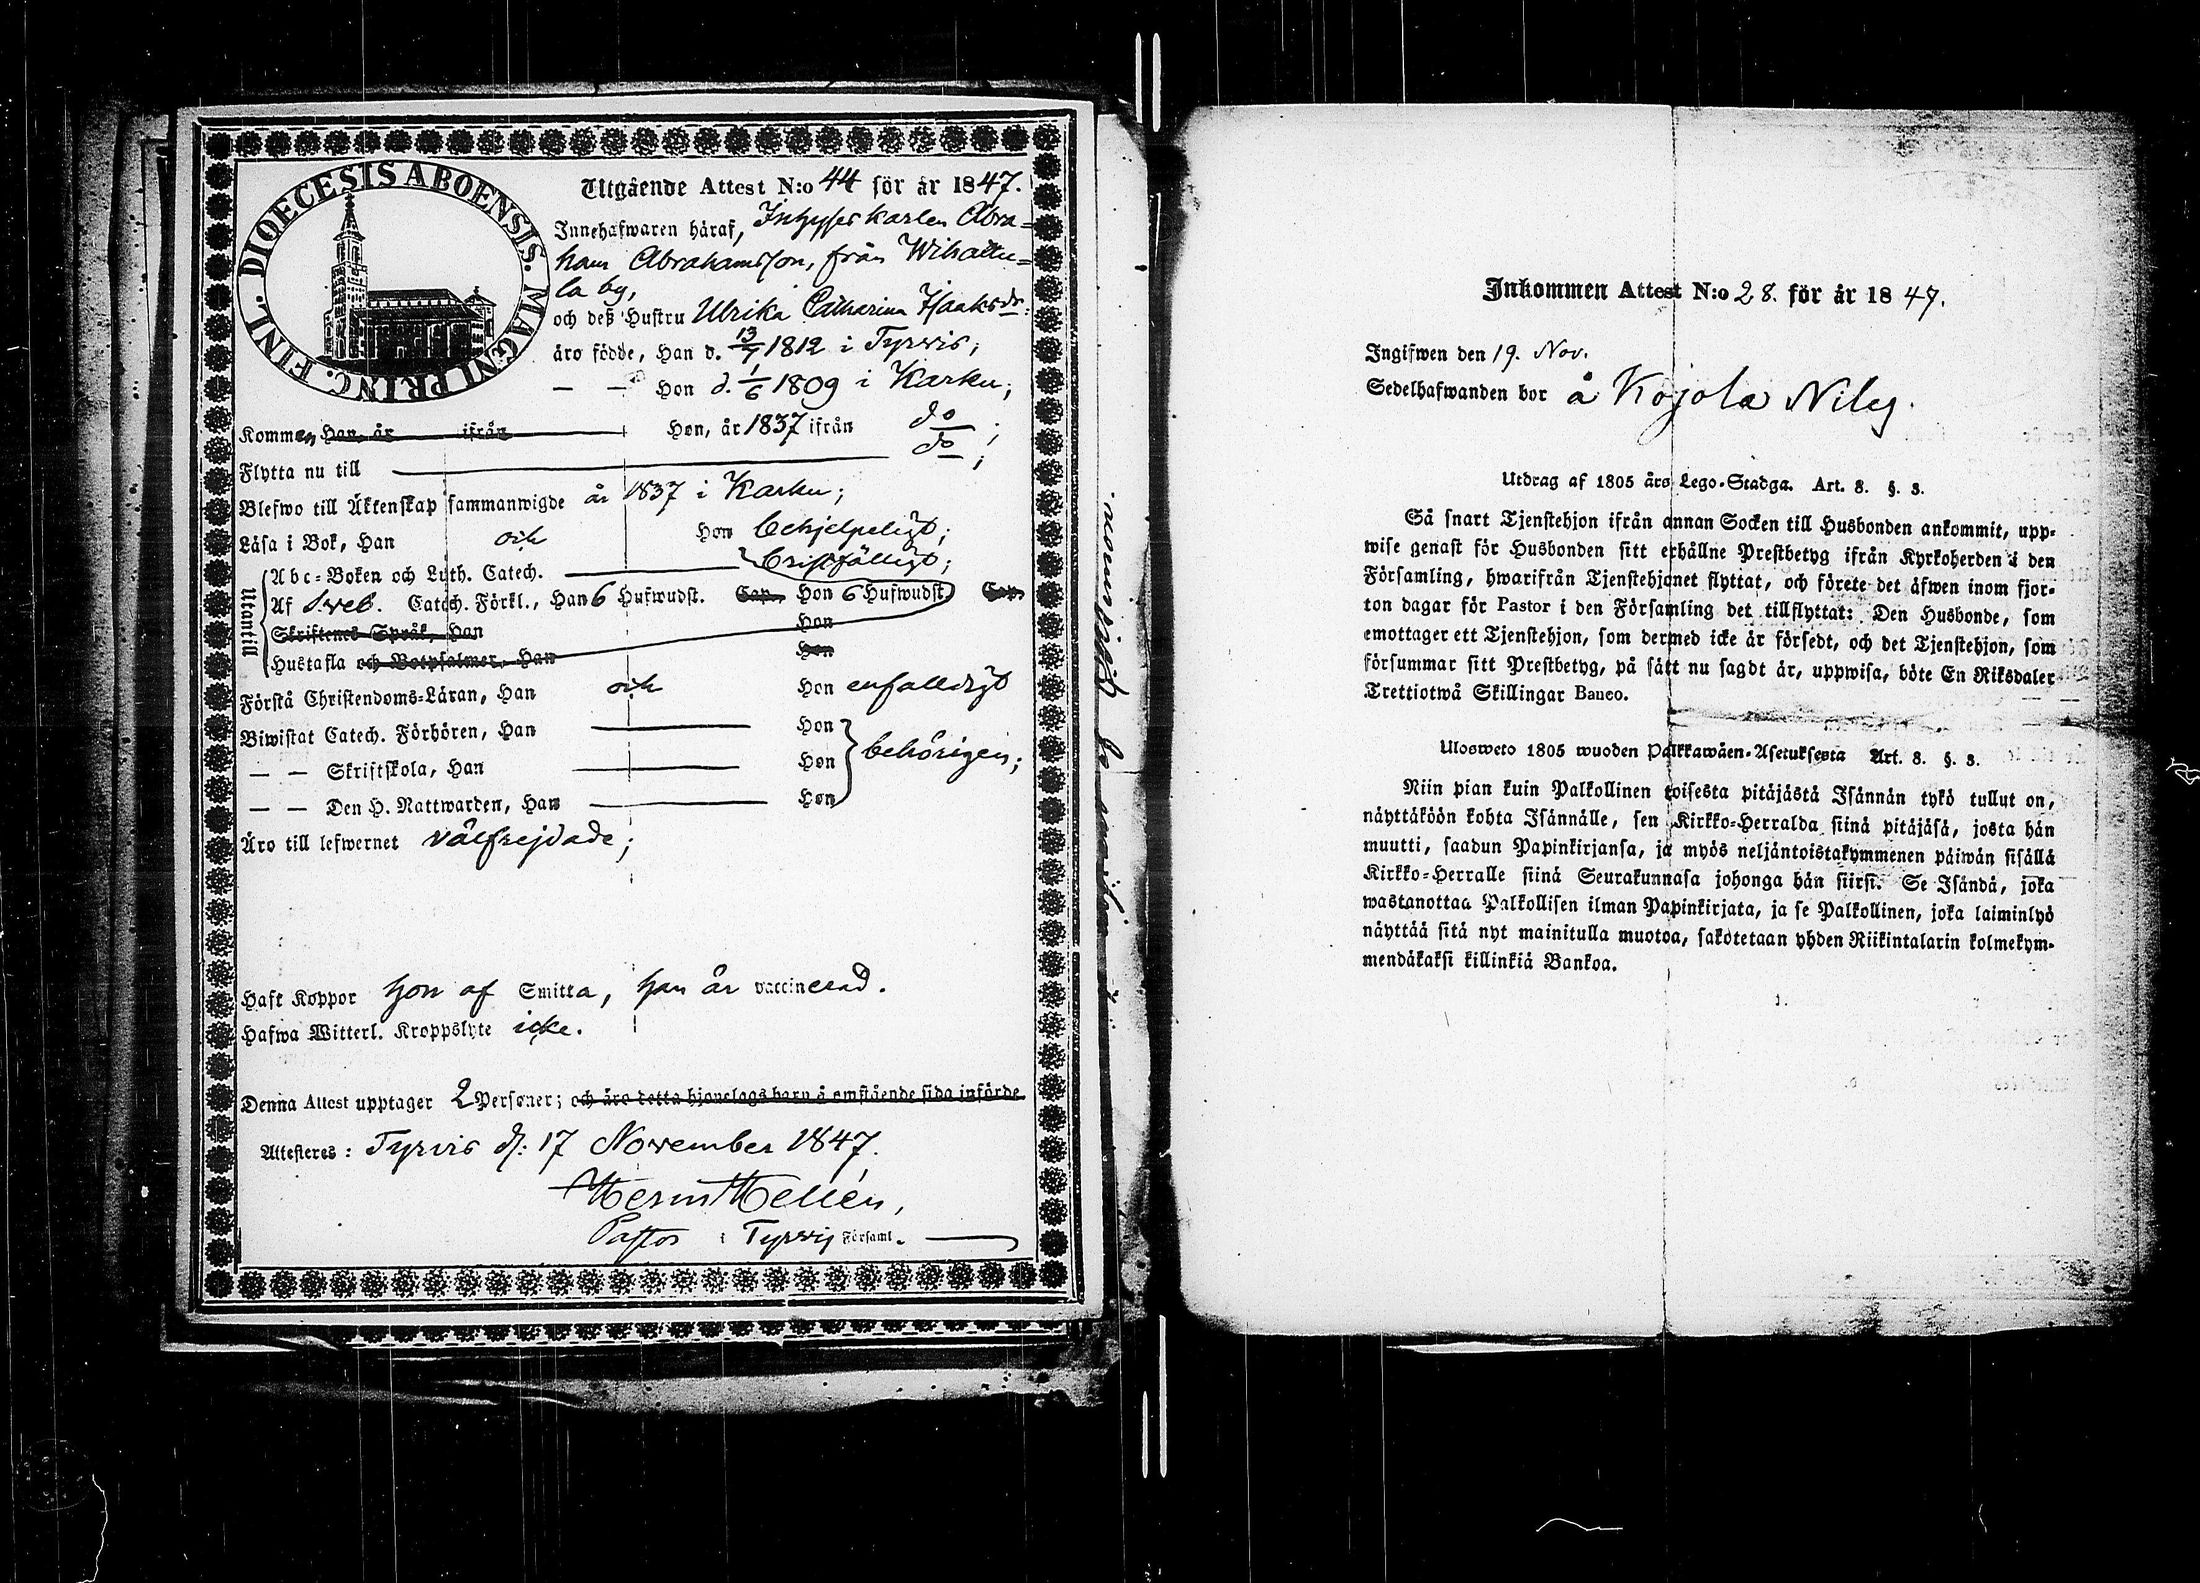 DIOECESIS ABOENSIS. MAGNI PRINC. FINL.
Utgående Attest N:o 44 för år 1847.
Innehafwaren häraf, Inhyses karlen Abra=
ham Abrahamsson, från
la by,
och deß Hustru Ulrika Catharina Isaksdr.
äro födde, Han d. 13/7 1812 i Tyrvis;
— — Hon d. 1/6 1809 i Karku;
Kommen Han, år ifrån Hon, år 1837 ifrån do do;
Flytta nu till
Blefwo till Äktenskap sammanwigde år 1837 i Karku;
Läsa i Bok, Han och Hon behjelpeligt;
Utantill
Abc=Boken och Luth. Catech. bristfälligt;
Af Sveb. Catech. Förkl., Han 6 Hufwudst. Cap. Hon 6 Hufwudst. Cap.
Skriftenes Språk, Han Hon
Hustafla och Botpsalmer, Han Hon
Förstå Christendoms=Läran, Han och Hon enfalldigt
Biwistat Catech. Förhören, Han Hon
— — Skriftskola, Han Hon behörigen;
— — Den H. Nattwarden, Han Hon
Äro till lefwernet välfrejdade;
Haft Koppor Hon af Smitta, han är vaccinerad.
Hafwa Witterl. Kroppslyte icke.
Denna Attest upptager 2 Personer; och äro detta hjonelags barn å omstående sida införde
Attesteres: Tyrvis d. 17 November 1847.
Herm Hellén,
Pastor i Tyrvis Församl.
Inkommen Attest N:o 28. för år 1847.
Ingifwen den 19. Nov.
Sedelhafwanden bor å Kojola
Utdrag af 1805 års Lego=Stadga. Art. 8. §. 3.
Så snart Tjenstehjon ifrån annan Socken till Husbonden ankommit, upp=
wise genast för Husbonden sitt erhållne Prestbetyg ifrån Kyrkoherden i den
Församling, hwarifrån Tjenstehjonet flyttat, och förete det äfwen inom fjor=
ton dagar för Pastor i den Församling det tillflyttat: Den Husbonde, som
emottager ett Tjenstehjon, som dermed icke är försedt, och det Tjenstehjon, som
försummar sitt Prestbetyg, på sätt nu sagdt är, uppwisa, böte En Riksdaler
Trettiotwå Skillingar Banco.
Ulosweto 1805 wuoden Palkkawäen=Asetuksesta Art. 8. §. 3.
Niin pian kuin Palkollinen toisesta pitäjästä Isännän tykö tullut on,
näyttäköön kohta Isännälle, sen Kirkko=Herralda siinä pitäjäsä, josta hän
muutti, saadun Papinkirjansa, ja myös neljäntoistakymmenen päiwän sisällä
Kirkko=Herralle siinä Seurakunnasa johonga hän siirsi. Se Isändä, joka
wastanottaa Palkollisen ilman Papinkirjata, ja se Palkollinen, joka laiminlyö
näyttää sitä nyt mainitulla muotoa, sakotetaan yhden Riikintalarin kolmekym=
mendäkaksi killinkiä Bankoa.